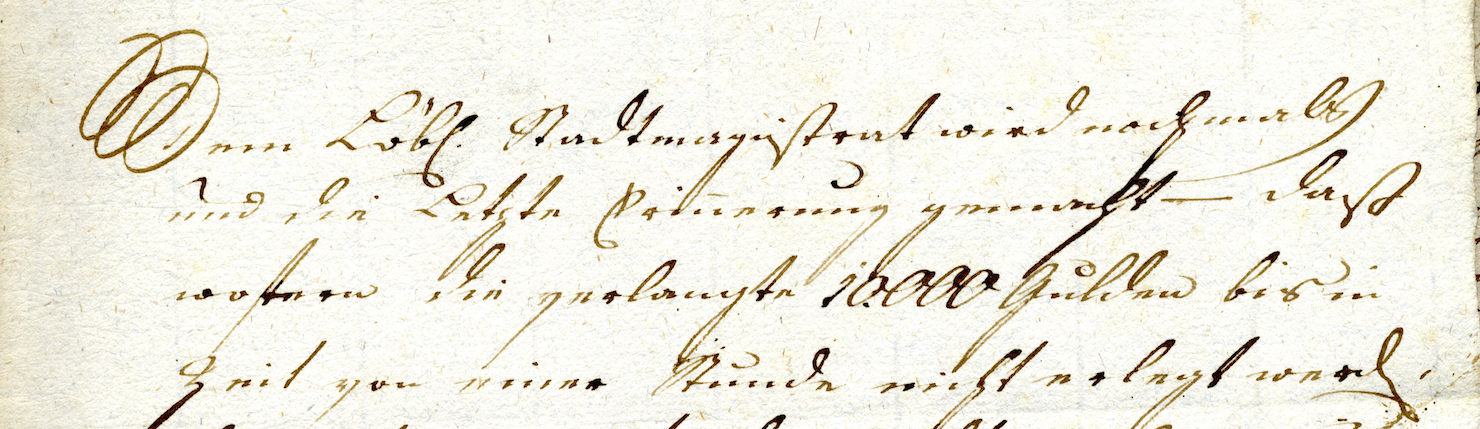 Dem Löbl. Stadtmagistrat wird nochmals
und die Letzte Erinnerung gemacht — daß
wofern die verlangte 10000 Gulden bis in
Zeit von einer Stunde nicht erlegt werd.